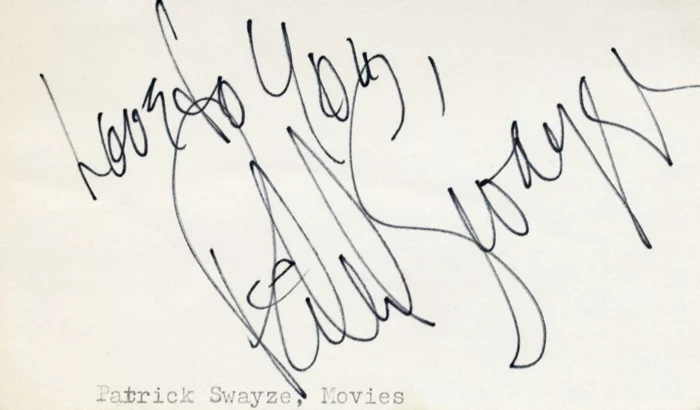 Love to You,
Patrick Swayze
Patrick Swayze, Movies